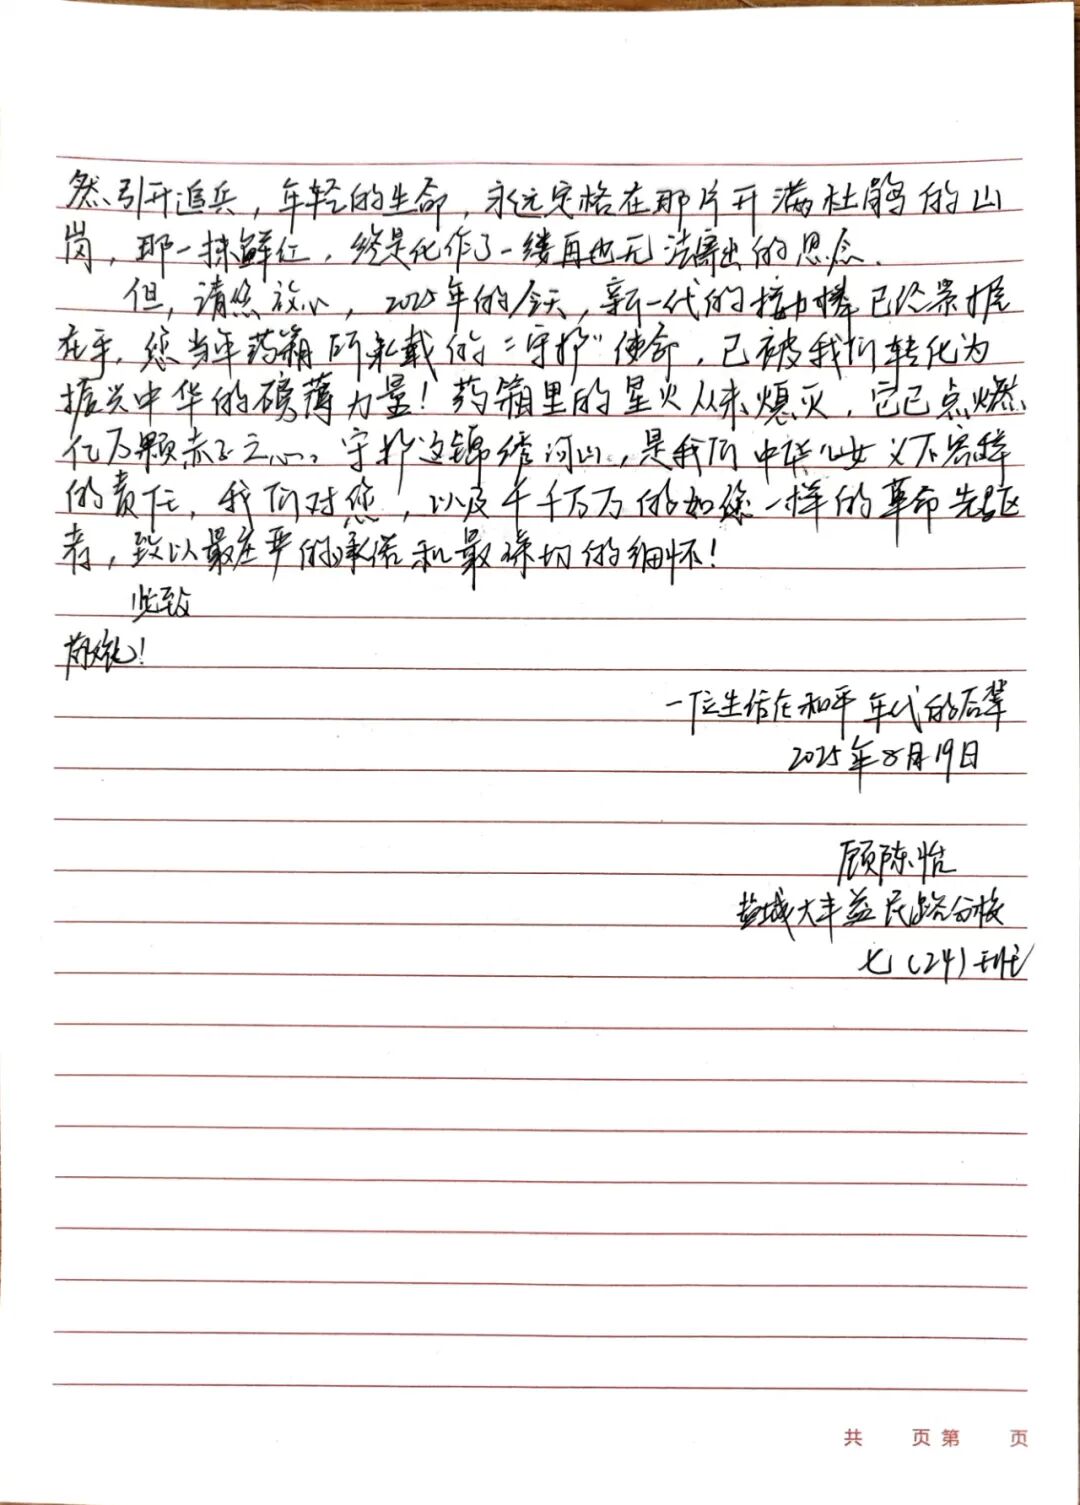 然引开追兵，年轻的生命，永远定格在那片开满杜鹃的山
岗，那一抹鲜红，终是化作了一缕再也无法寄出的思念。
但，请您放心，2025年的今天，新一代的接力棒已经紧握
在手，您当年药箱所承载的“守护”使命，已被我们转化为
振兴中华的磅薄力量！药箱里的星火从未熄灭，它已点燃
亿万颗赤子之心。守护这锦绣河山，是我们中华儿女义不容辞
的责任，我们对您，以及千千万万的如您一样的革命先驱
者，致以最庄严的承诺和最深切的缅怀！
此致
敬礼！
一位生活在和平年代的后辈
2025年8月19日
顾陈怡
盐城大丰益民路分校
七（24）班
共 页 第 页